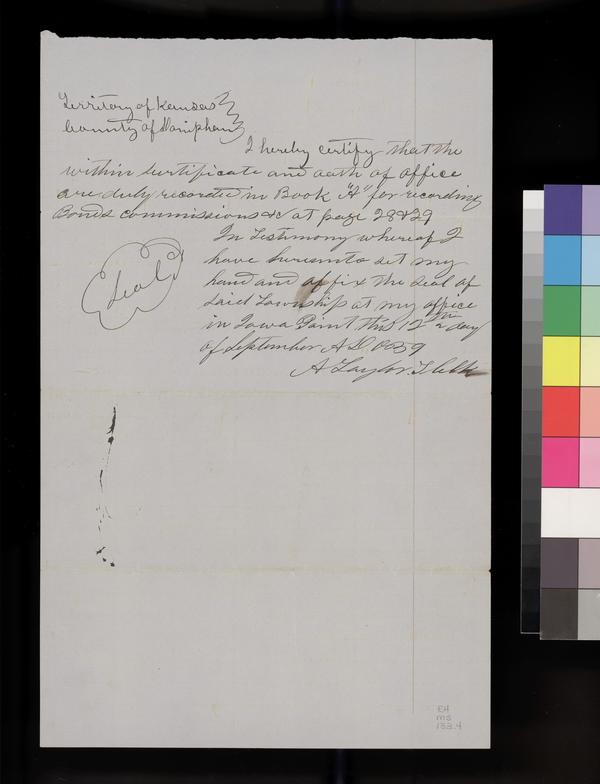 Territory of Kansas
County of Doniphan
I hereby certify that the
within Certificate and oath of office
are duly recorded in Book "A" for recording
Bonds commissions &c at page 28 & 29
In Testimony whereof I
have hereunto set my
hand and affix the seal of
Said Township at my office
in Iowa Point this 12th day
of September A.D. 1859
Seal
A Taylor. T. Clk
EH
MS
133.4